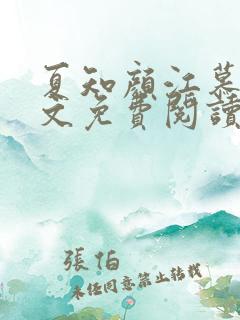 夏知顏江慕
文免費閱讀
張怕
未經同意禁止轉載